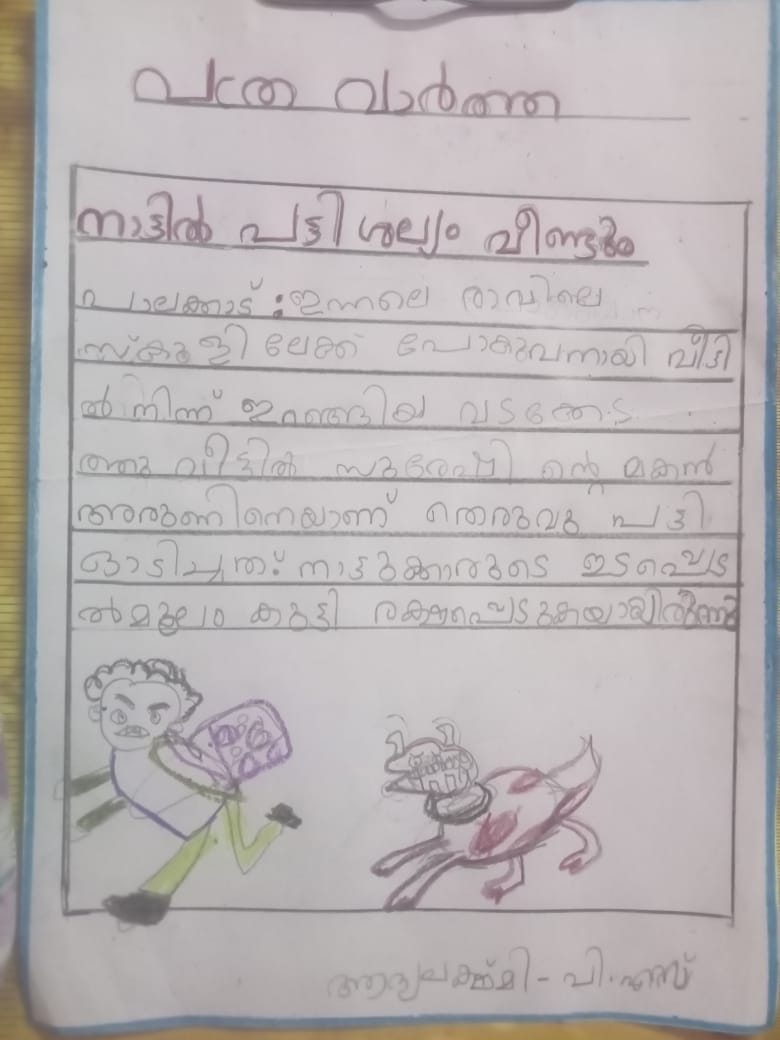 പത്ര വാർത്ത
നാട്ടിൽ പട്ടി ശല്യം വീണ്ടും
പാലക്കാട് : ഇന്നലെ രാവിലെ
സ്കൂളി ലേക്ക് പോകുവനായി വീട്ടി
ൽ നിന്ന് ഇറങ്ങിയ വടക്കേട
ത്തു വീട്ടിൽ സുരേഷി ന്റെ മകൻ
അരുണിനെയാണ് തെരുവു പട്ടി
ഓടിച്ചത്. നാട്ടുക്കാരുടെ ഇടപ്പെട
ൽമൂലം കുട്ടി രക്ഷപ്പെടുകയായിരുന്നു
ആദ്യലക്ഷ്മി - പി. എസ്